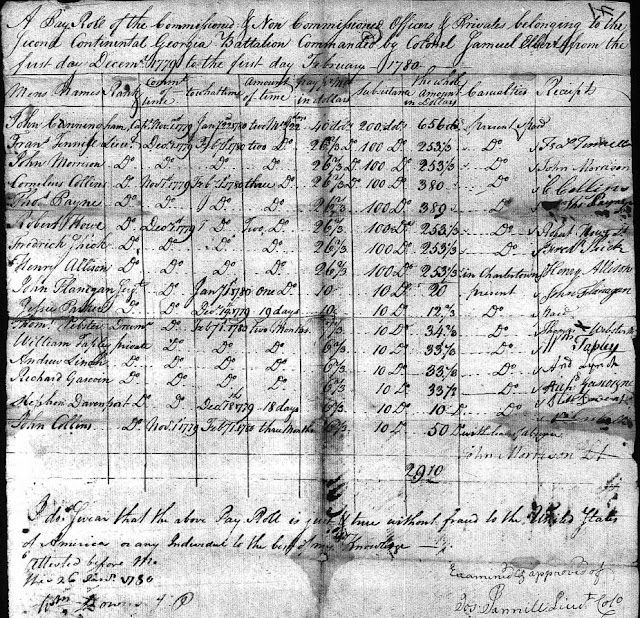 A Pay Roll of the Commissioned & Non Commissioned Officers & Privates belonging to the
Second Continental Georgia Battalion Commanded by Colonel Samuel Elbert from the
first day Decemr 1779 to the first day February 1780
Mens Names Rank Commt of time to what time Amount of time pay in dollars Subsistance the whole amount in Dollars Casualties Receipt
John Cunningham Capt Novr 1779 Jany 22 1780 two Mos 22 40 dols 200 dols 656 dols Present paid
Frans Tennell Lieut Decr 1 1779 Feby 1st 1780 two Do 26 2/3 Do 100 Do 253 1/3 Do Fras Tennell
John Morrison Do Do Do Do 26 2/3 Do 100 Do 253 1/3 Do John Morrison
Cornelius Collins Do Novr 1st 1779 Feb 1st 1780 three Do 26 2/3 Do 100 Do 380 Do C Collins
Thos Payne Do Do 26 2/3 100 Do 389 Do Thos Payne
Robert Howe Do Decr 1st 1779 Do Two Do 26 2/3 100 Do 253 1/3 Do Robt Howe Lt
Fredrick Shick Do Do Do Do 26 2/3 100 Do 253 1/3 Do Fredk Shick
Henry Allison Do Do Do Do 26 2/3 100 Do 253 1/3 in Charlstown Henry Allison
John Flanegan Sergt Do Jany 1st 1780 one Do 10 10 Do 20 present John Flanagan
Jessie Parker Do Do Decr 19th 1779 19 days 10 10 Do 12 2/3 Do paid
Thoms Webster Drumr Do Feby 1st 1780 two Months 10 Do 34 2/3 Do Thomas X Webster
William Tapley private Do Do Do 6 2/3 10 Do 33 1/3 Do Tapley
Andrew Linch Do Do Do Do 6 2/3 10 Do 33 1/3 Do And Lynch
Richard Gascoin Do Do Do Do 6 2/3 10 Do 33 1/3 Do Gascoigne
Stephen Davenport Do Do Decr 18th 1779 18 days 6 2/3 10 Do 10 Do
John Collins Do Novr 1st 1779 Feb 1st 1780 three Months 6 2/3 10 Do 50 Do
John Morrison Lt
2910
I do Swear that the above Pay Roll is just & true without fraud to the United States
of America or any Individual to the best of my Knowledge
Attested before Me
this 26 1780
J P
Examined & approved of
Jos Pannill Lieut Colo